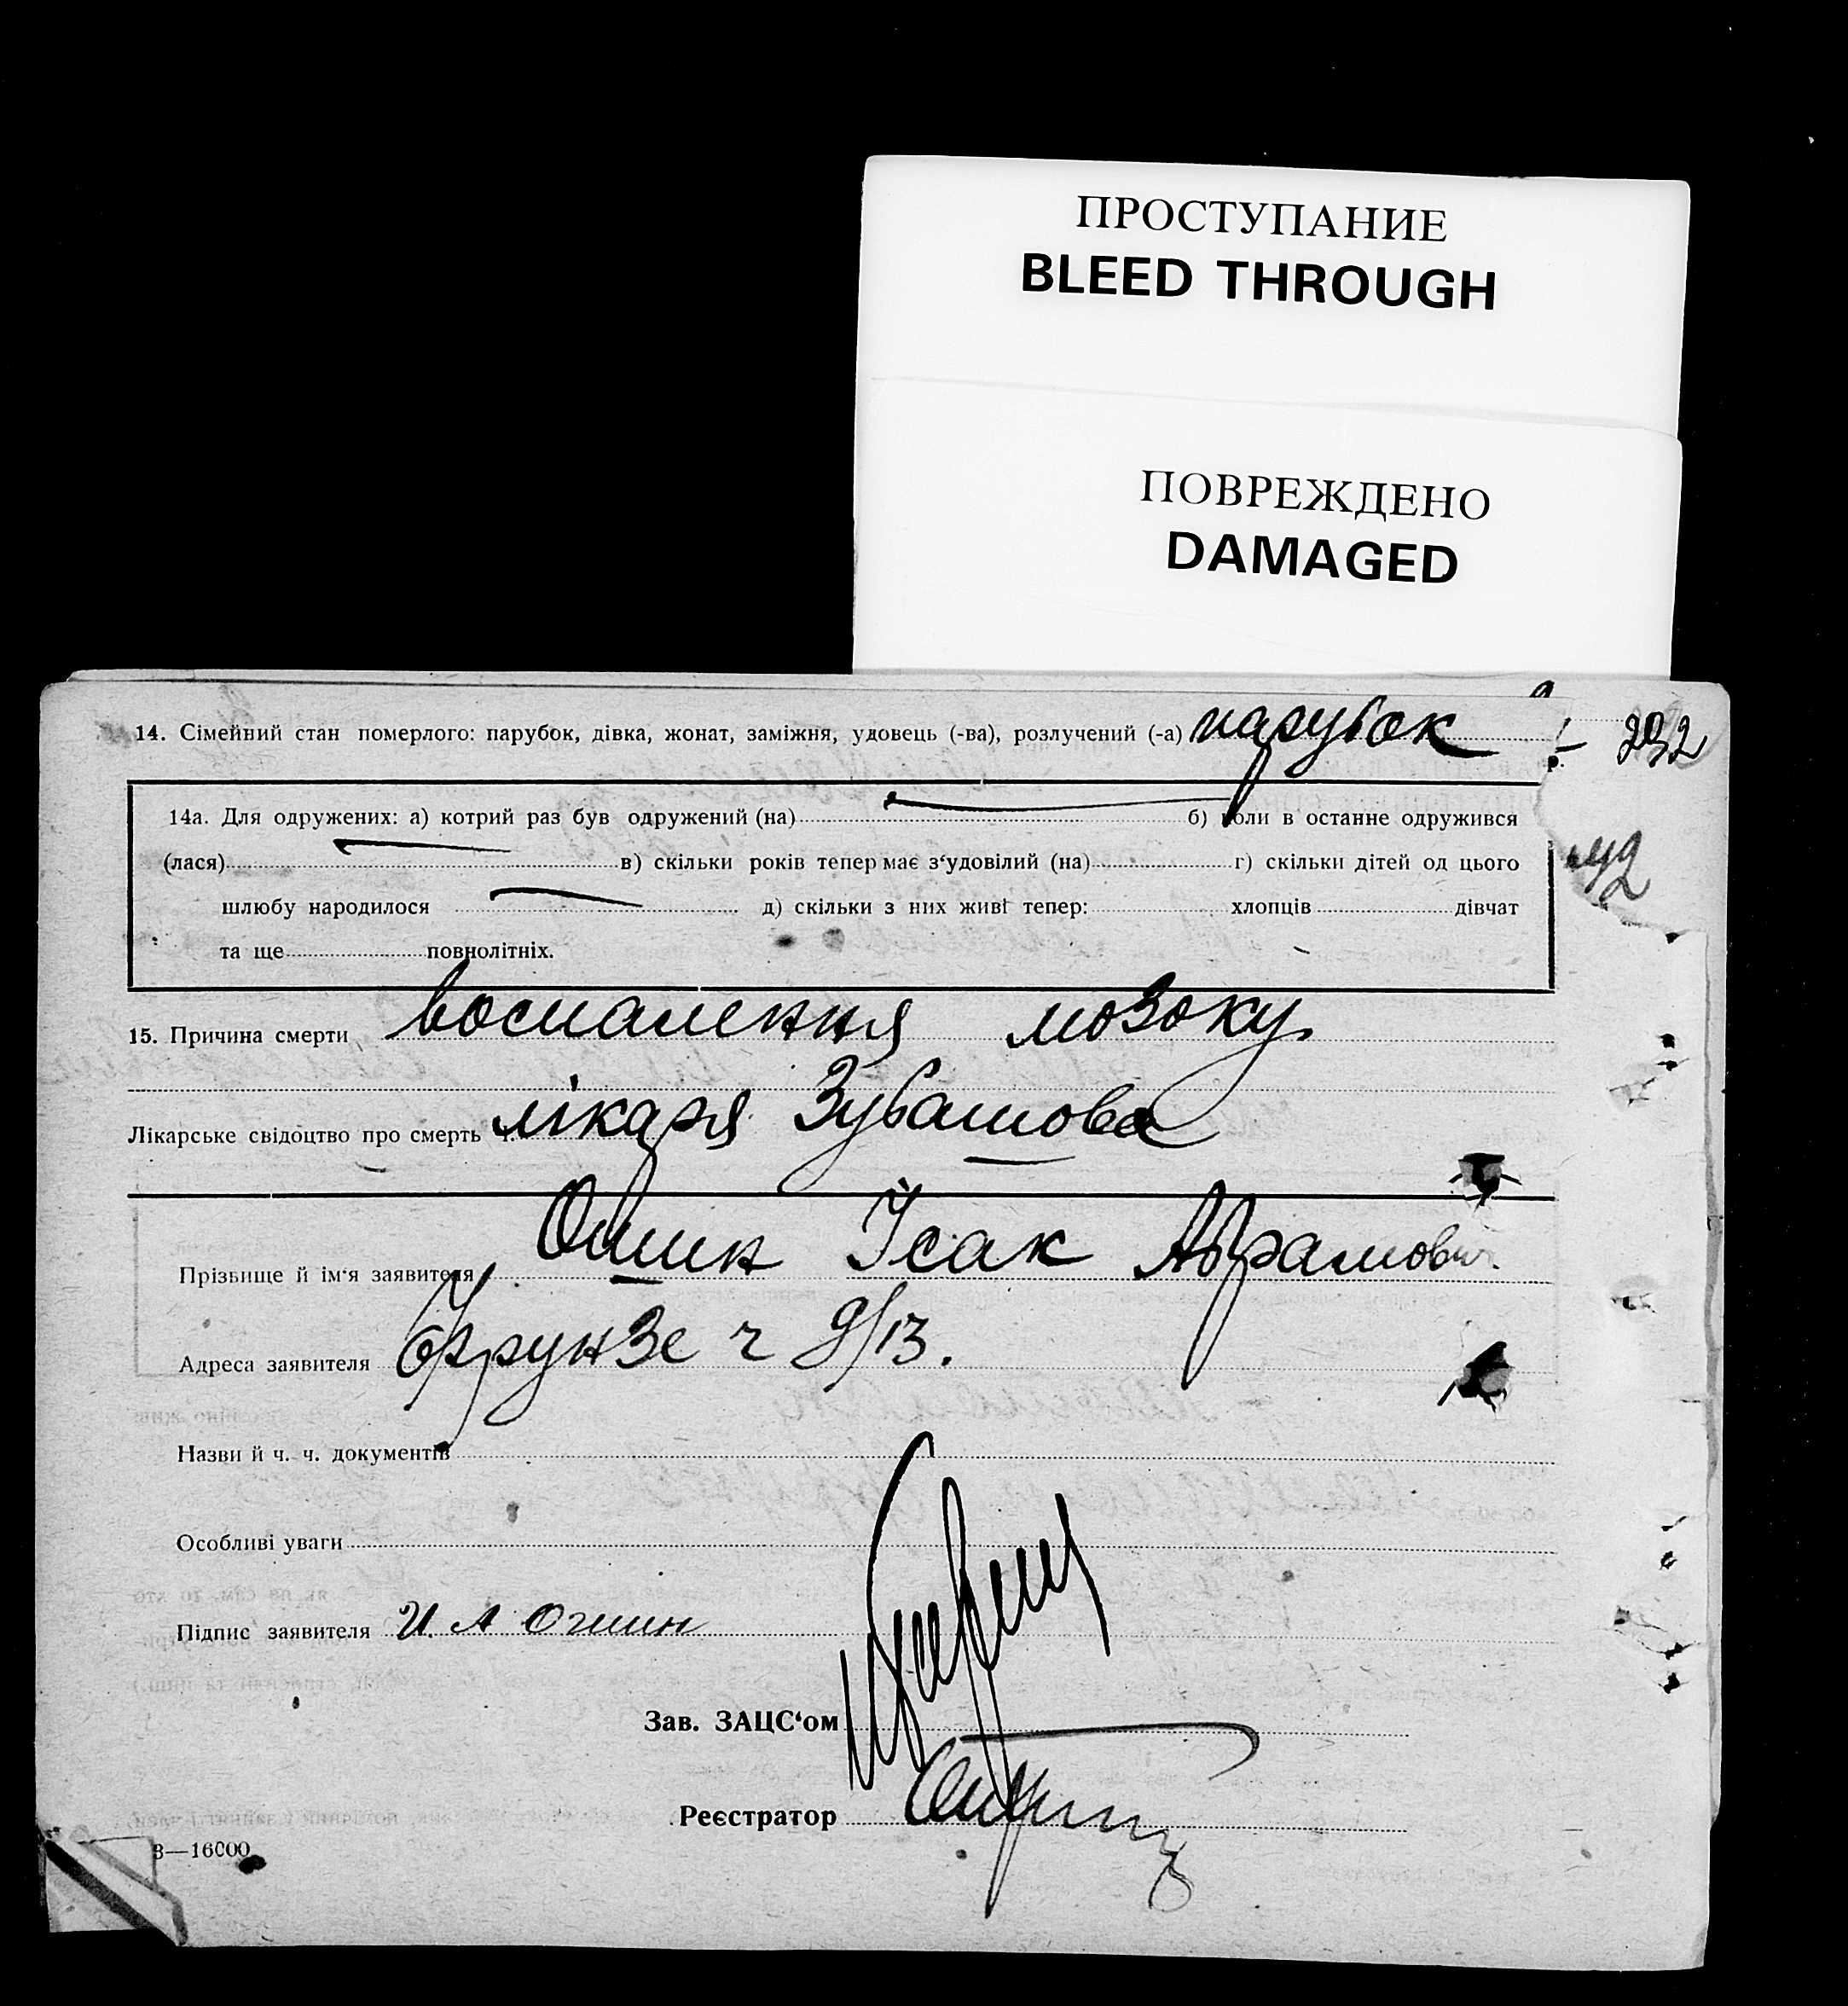 ПРОСТУПАНИЕ
BLEED THROUGH
ПОВРЕЖДЕНО
DAMAGED
14. Сімейний стан померлого: парубок, дівка, жонат, заміжня, удовець (-ва), розлучений (-а) парубок
292
14а. Для одружених: а) котрий раз був одружений (на) б) коли в останне одружився
(лася) в) скільки років тепер має з‘удовілий (на) г) скільки дітей од цього
шлюбу народилося д) скільки з них живі тепер: хлопців дівчат
та ще повнолітніх.
15. Причина смерти воспалення мозоку
Лікарське свідоцтво про смерть лікаря Зубашова
Прізвище й ім‘я заявителя Ошин Ісак Абрамович
Адреса заявителя Фрунзе ч 9/13.
Назви й ч. ч. документів
Особливі уваги
Підпис заявителя И. А
Зав. ЗАЦС‘ом
Реєстратор
3—16000